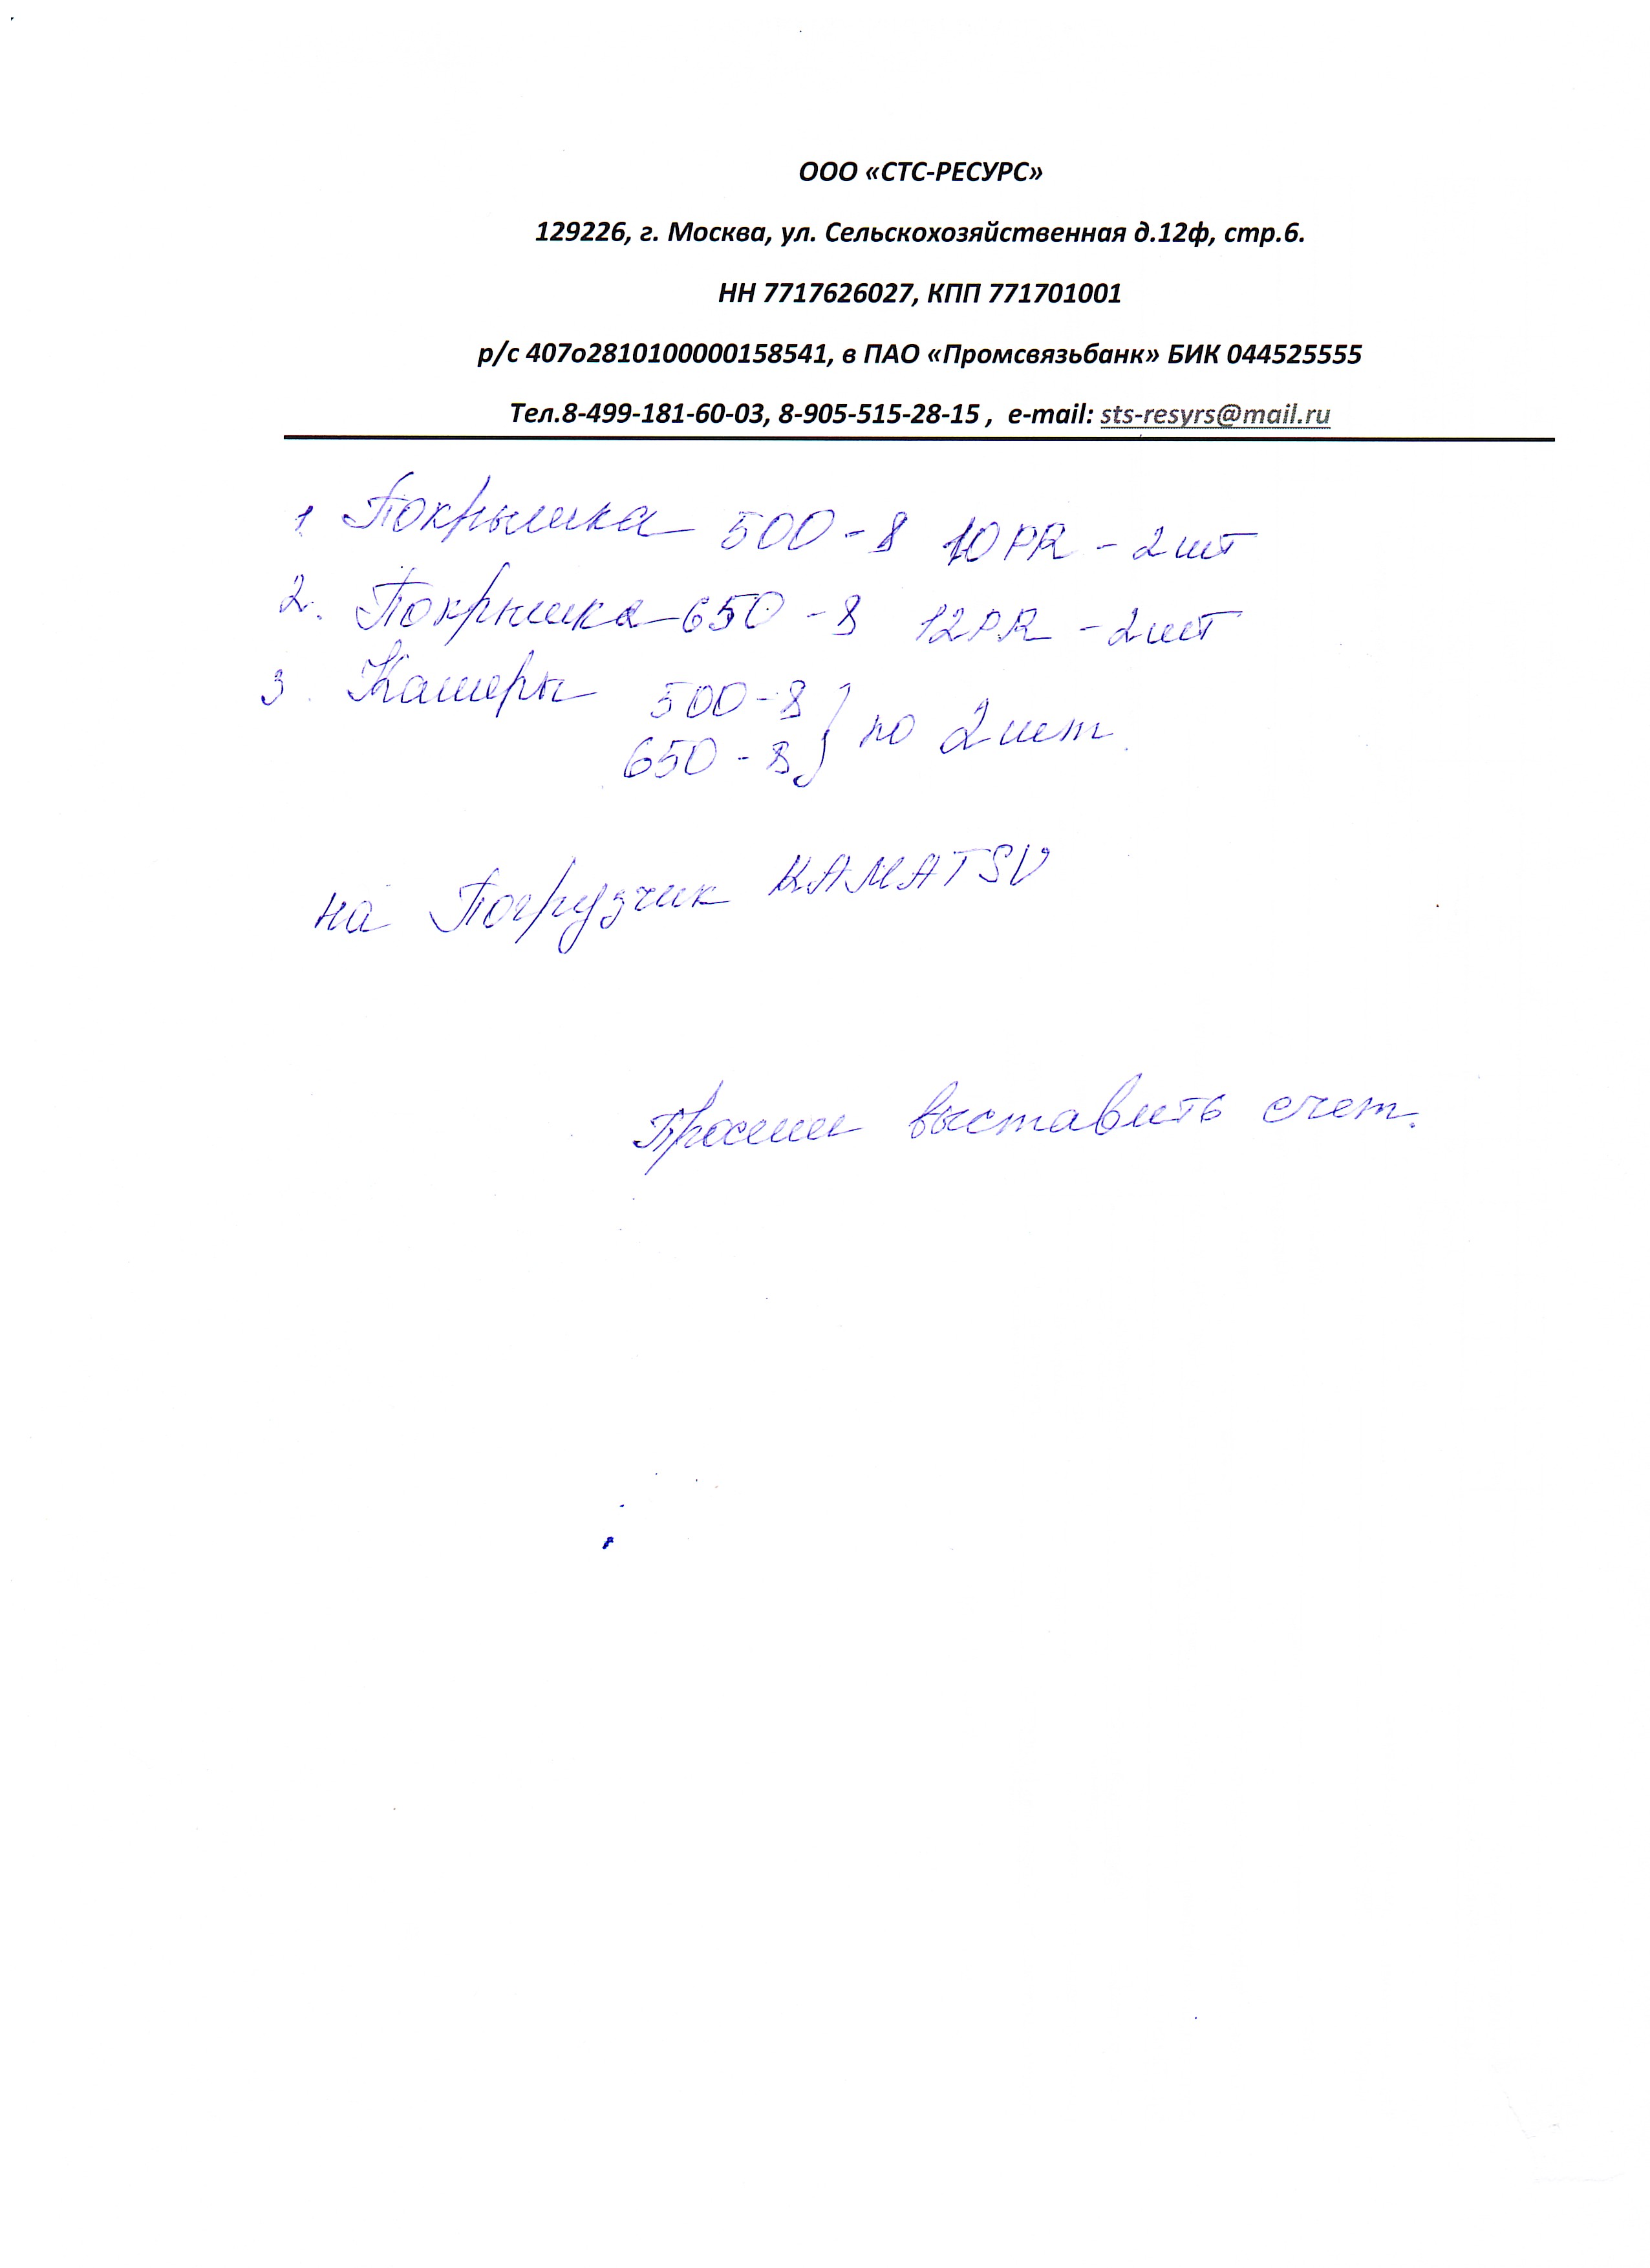 ООО «СТС-РЕСУРС»
129226, г. Москва, ул. Сельскохозяйственная д.12ф, стр.6.
НН 7717626027, КПП 771701001
р/с 407о2810100000158541, в ПАО «Промсвязьбанк» БИК 044525555
Тел.8-499-181-60-03, 8-905-515-28-15 , e-mail: sts-resyrs@mail.ru
1. Покрышка 500-8 10PR - 2шт
2. Покрышка 650-8 12PR - 2шт
3. Камеры 500-8 } по 2 шт.
650-8
на Погрузчик KAMATSU
Просим выставить счет.